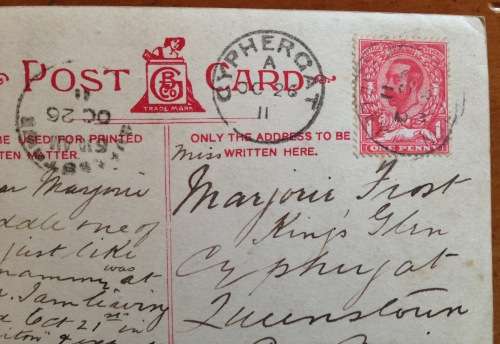 POST CARD
TRADE MARK
CYPHERGAT
A
OC 26
11
OC 26
ONE PENNY
BE USED FOR PRINTED
TEN MATTER.
ONLY THE ADDRESS TO BE
WRITTEN HERE.
Miss
Marjorie Frost
King's Glen
Cyphergat
Queenstown
ar Marjorie
ddle one of
just like
mammy was at
I am leaving
d Oct 21st in